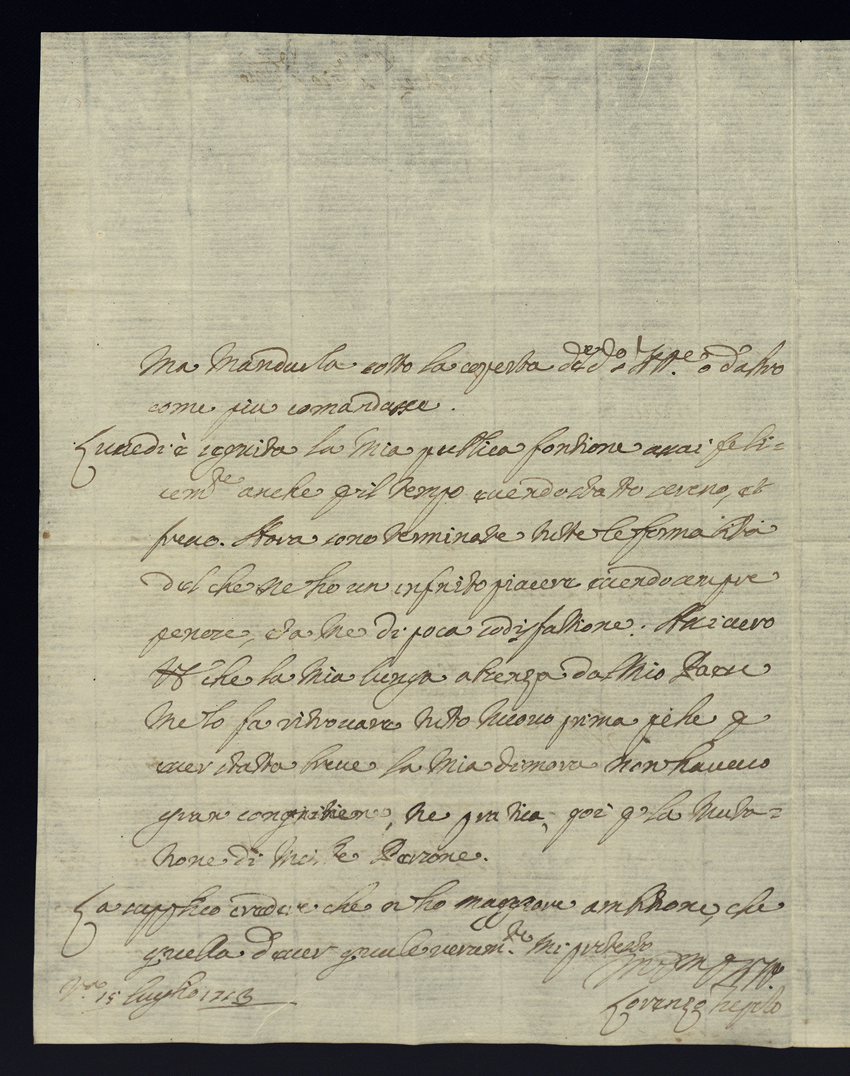 ma mandarla sotto la coperta di d.o o d'altro
come piu comandasse.
Lunedi è seguita la mia publica fontione assai feli=
cem.te anche p il tempo essendo stato sereno, et
fresco. Hora sono terminate tutte le formalità
del che ne ho un infinito piacere essendo sempre
penose, e a me di poca sodisfattione.
che la mia lunga absenza dal mio Paese
me lo fa ritrovare tutto nuovo prima p che p
esser stata breve la mia dimora non havevo
gran cognitione, ne pratica, poi p la muta=
tione di molte Persone.
La supplico credere che non ho maggiore ambitione, che
quella d'esser quale veram.te mi protesto
15 luglio 1713
Lorenzo Tiepolo